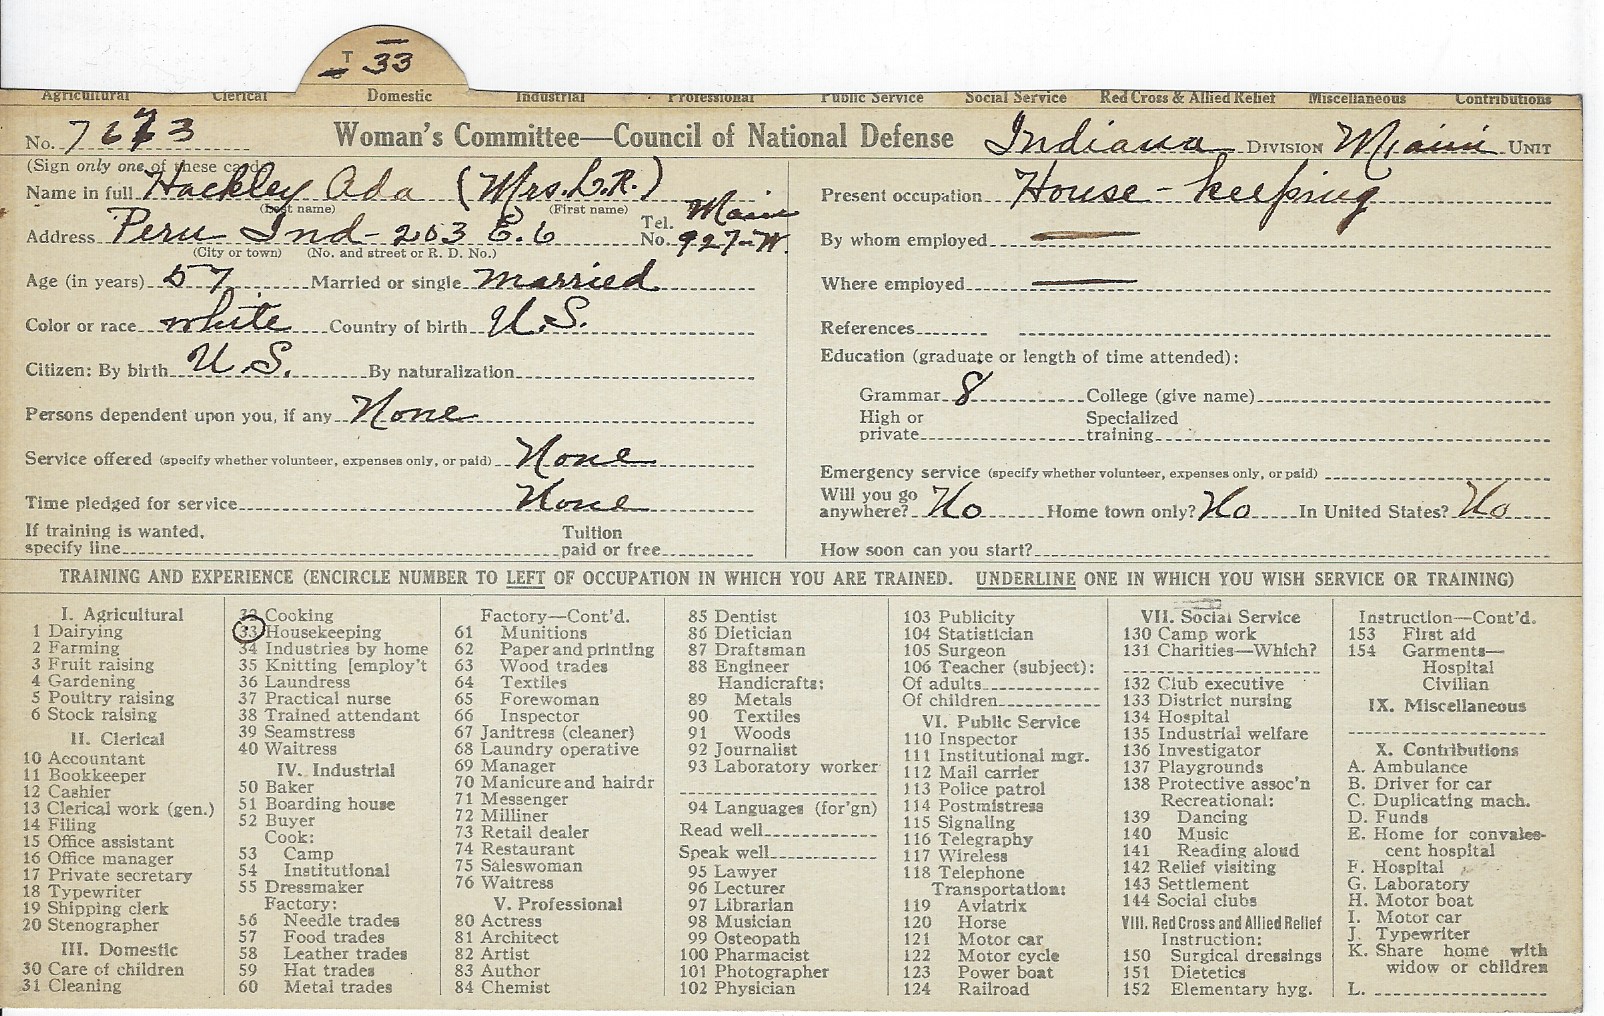 T 33
Agricultural Clerical Domestic Industrial Professional Public Service Social Service Red Cross & Allied Relief Miscellaneous Contributions
No. 7673 Woman's Committee—Council of National Defense Indiana DIVISION Miami UNIT
(Sign only one of these cards)
Name in full Hackley Ada (Mrs. L.R.)
(Last name) (First name)
Address Peru Ind- 203 E. 6 Tel. No. Main 927-W.
(City or town) (No. and street or R. D. No.)
Age (in years) 57 Married or single married
Color or race white Country of birth U.S.
Citizen: By birth U.S. By naturalization
Persons dependent upon you, if any None
Service offered (specify whether volunteer, expenses only, or paid) None
Time pledged for service None
If training is wanted, specify line Tuition paid or free
Present occupation House-keeping
By whom employed —
Where employed —
References
Education (graduate or length of time attended):
Grammar 8 College (give name)
High or private Specialized training
Emergency service (specify whether volunteer, expenses only, or paid)
Will you go anywhere? No Home town only? No In United States? No
How soon can you start?
TRAINING AND EXPERIENCE (ENCIRCLE NUMBER TO LEFT OF OCCUPATION IN WHICH YOU ARE TRAINED. UNDERLINE ONE IN WHICH YOU WISH SERVICE OR TRAINING)
I. Agricultural
1 Dairying
2 Farming
3 Fruit raising
4 Gardening
5 Poultry raising
6 Stock raising
II. Clerical
10 Accountant
11 Bookkeeper
12 Cashier
13 Clerical work (gen.)
14 Filing
15 Office assistant
16 Office manager
17 Private secretary
18 Typewriter
19 Shipping clerk
20 Stenographer
III. Domestic
30 Care of children
31 Cleaning
32 Cooking
33 Housekeeping
34 Industries by home
35 Knitting [employ't
36 Laundress
37 Practical nurse
38 Trained attendant
39 Seamstress
40 Waitress
IV. Industrial
50 Baker
51 Boarding house
52 Buyer
Cook:
53 Camp
54 Institutional
55 Dressmaker
Factory:
56 Needle trades
57 Food trades
58 Leather trades
59 Hat trades
60 Metal trades
Factory—Cont'd.
61 Munitions
62 Paper and printing
63 Wood trades
64 Textiles
65 Forewoman
66 Inspector
67 Janitress (cleaner)
68 Laundry operative
69 Manager
70 Manicure and hairdr
71 Messenger
72 Milliner
73 Retail dealer
74 Restaurant
75 Saleswoman
76 Waitress
V. Professional
80 Actress
81 Architect
82 Artist
83 Author
84 Chemist
85 Dentist
86 Dietician
87 Draftsman
88 Engineer
Handicrafts:
89 Metals
90 Textiles
91 Woods
92 Journalist
93 Laboratory worker
94 Languages (for'gn)
Read well
Speak well
95 Lawyer
96 Lecturer
97 Librarian
98 Musician
99 Osteopath
100 Pharmacist
101 Photographer
102 Physician
103 Publicity
104 Statistician
105 Surgeon
106 Teacher (subject):
Of adults
Of children
VI. Public Service
110 Inspector
111 Institutional mgr.
112 Mail carrier
113 Police patrol
114 Postmistress
115 Signaling
116 Telegraphy
117 Wireless
118 Telephone
Transportation:
119 Aviatrix
120 Horse
121 Motor car
122 Motor cycle
123 Power boat
124 Railroad
VII. Social Service
130 Camp work
131 Charities—Which?
132 Club executive
133 District nursing
134 Hospital
135 Industrial welfare
136 Investigator
137 Playgrounds
138 Protective assoc'n
Recreational:
139 Dancing
140 Music
141 Reading aloud
142 Relief visiting
143 Settlement
144 Social clubs
VIII. Red Cross and Allied Relief
Instruction:
150 Surgical dressings
151 Dietetics
152 Elementary hyg.
Instruction—Cont'd.
153 First aid
154 Garments—
Hospital
Civilian
IX. Miscellaneous
X. Contributions
A. Ambulance
B. Driver for car
C. Duplicating mach.
D. Funds
E. Home for convales-
cent hospital
F. Hospital
G. Laboratory
H. Motor boat
I. Motor car
J. Typewriter
K. Share home with
widow or children
L.